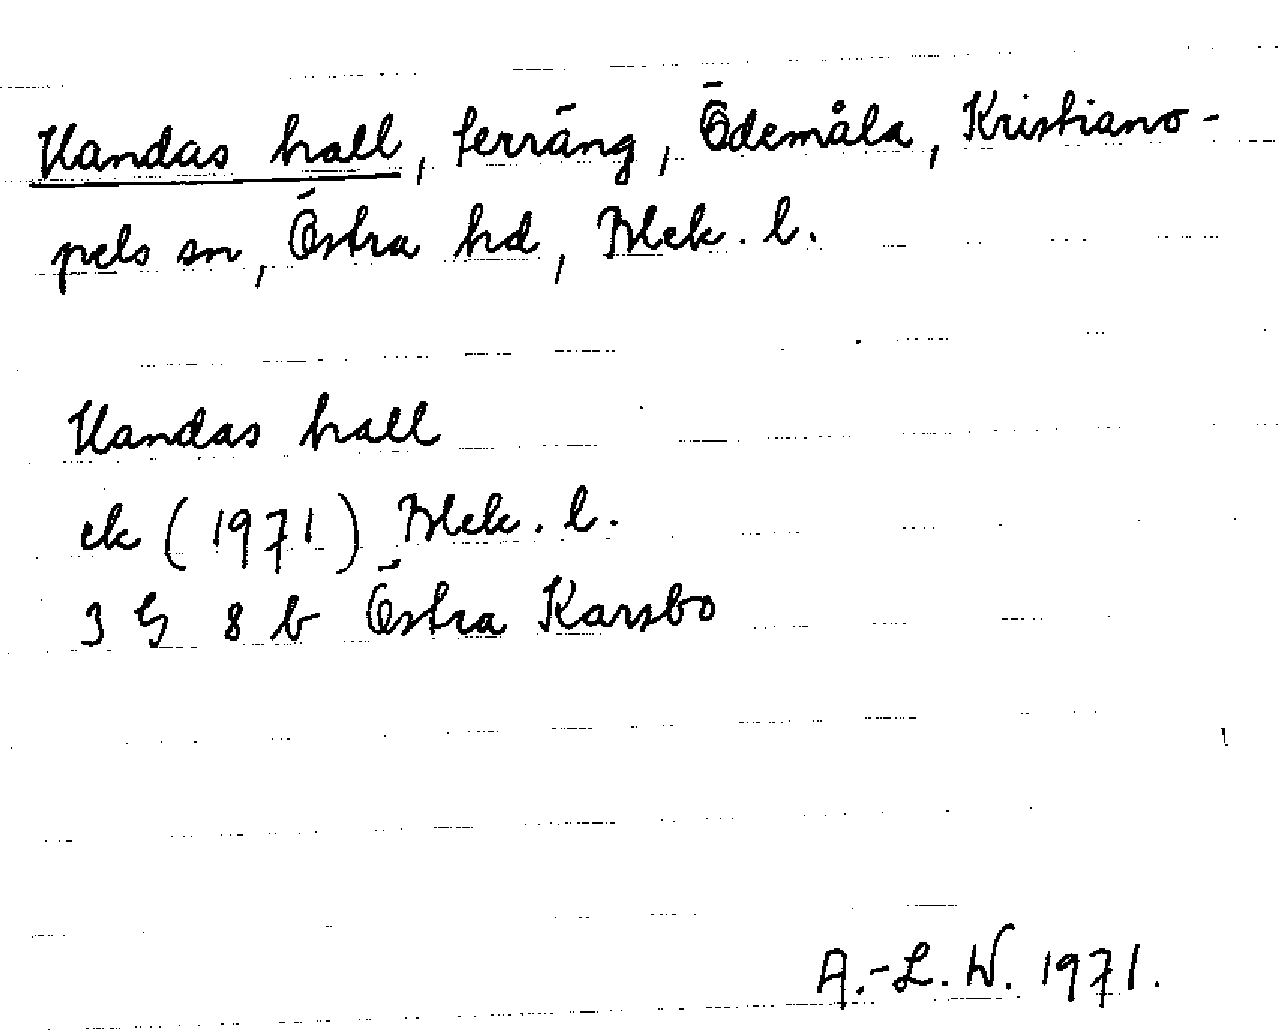 Handas hall, terräng, Ödemåla, Kristiano-
pels sn, Östra hd, Blek. l.
Handas hall
ek (1971) Blek. l.
3 G 8 b Östra Karsbo
A.-L. W. 1971.